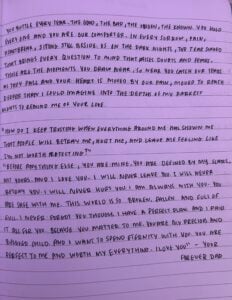 YOU BOTTLE EVERY TEAR. THE GOOD, THE BAD, THE UNSEEN, THE KNOWN. YOU HOLD
EVERY ONE AND YOU ARE OUR COMFORTER. IN EVERY SORROW, PAIN,
HEARTBREAK, I STAND STILL BESIDE US. ON THE DARK NIGHTS, THE TEAR SOAKED
THAT BRINGS EVERY QUESTION TO MIND THAT DOUBTS AND FEARS.
THOSE ARE THE MOMENTS YOU DRAW NEAR, SO NEAR YOU CATCH OUR TEARS
AS THEY FALL AND YOUR HEART IS MOVED BY OUR PAIN, MOVED TO REACH
DEEPER THAN I COULD IMAGINE INTO THE DEPTHS OF MY DARKEST
NIGHTS TO REMIND ME OF YOUR LOVE.
"HOW DO I KEEP TRUSTING WHEN EVERYTHING AROUND ME HAS SHOWN ME
THAT PEOPLE WILL BETRAY ME, HURT ME, AND LEAVE ME FEELING LIKE
I'M NOT WORTH PROTECTING?"
"BEFORE ANYTHING ELSE, YOU ARE MINE. YOU ARE DEFINED BY MY SCARS,
NOT YOURS AND I LOVE YOU. I WILL NEVER LEAVE YOU I WILL NEVER
BETRAY YOU I WILL NEVER HURT YOU I AM ALWAYS WITH YOU. YOU
ARE SAFE WITH ME. THIS WORLD IS SO BROKEN, FALLEN AND FULL OF
EVIL I NEVER FORGET YOU THOUGH, I HAVE A PERFECT PLAN AND I MADE
IT ALL FOR YOU. BECAUSE YOU MATTER TO ME, YOU ARE MY PRECIOUS AND
BELOVED CHILD. AND I WANT TO SPEND ETERNITY WITH YOU. YOU ARE
PERFECT TO ME AND WORTH MY EVERYTHING. I LOVE YOU" - YOUR
FOREVER DAD